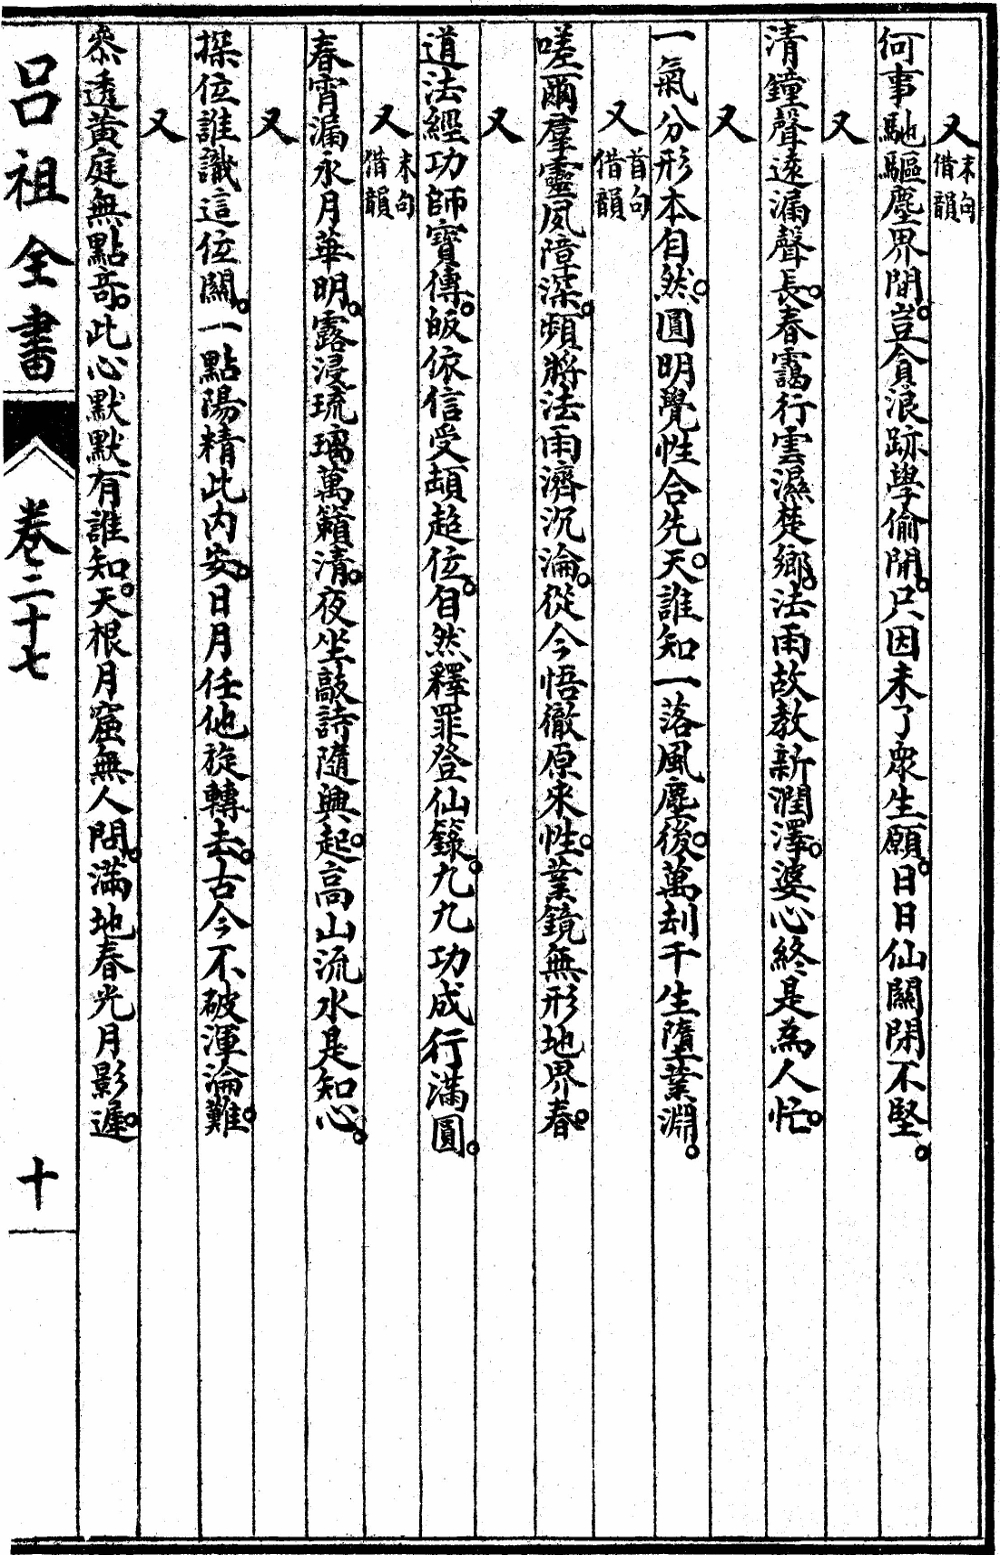 又 末句借韻
何事馳驅塵界間。豈貪浪跡學偷閒。只因未了眾生願。日日仙關閉不堅。
又
清鐘聲遠漏聲長。春靄行雲濕楚鄉。法雨故教新潤澤。婆心終是為人忙。
又
一氣分形本自然。圓明覺性合先天。誰知一落風塵後。萬刦千生墮業淵。
又 首句借韻
嗟爾羣靈夙障深。頻將法雨濟沉淪。從今悟徹原來性。業鏡無形地界春。
又
道法經功師寶傳。皈依信受頡超位。自然釋罪登仙籙。九九功成行滿圓。
又 末句借韻
春宵漏永月華明。露浸琉璃萬籟清。夜坐敲詩隨興起。高山流水是知心。
又
探位誰識這位關。一點陽精此內安。日月任他旋轉去。古今不破渾淪難。
又
叅透黃庭無點奇。此心默默有誰知。天根月窟無人問。滿地春光月影遲。
呂祖全書 卷二十七 十